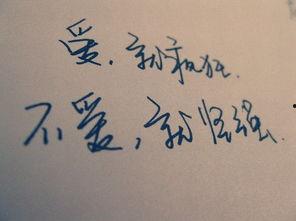 爱,就疯狂.
不爱,就坚强.